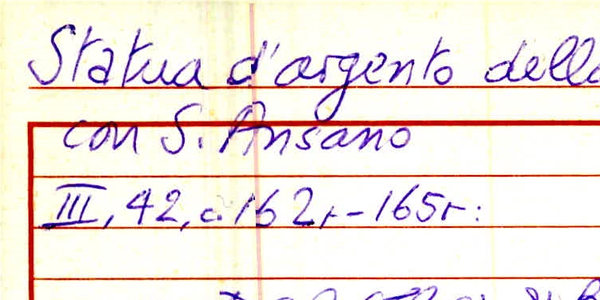 Statua d'argento della
con S. Ansano
III, 42, c. 162r-165r: